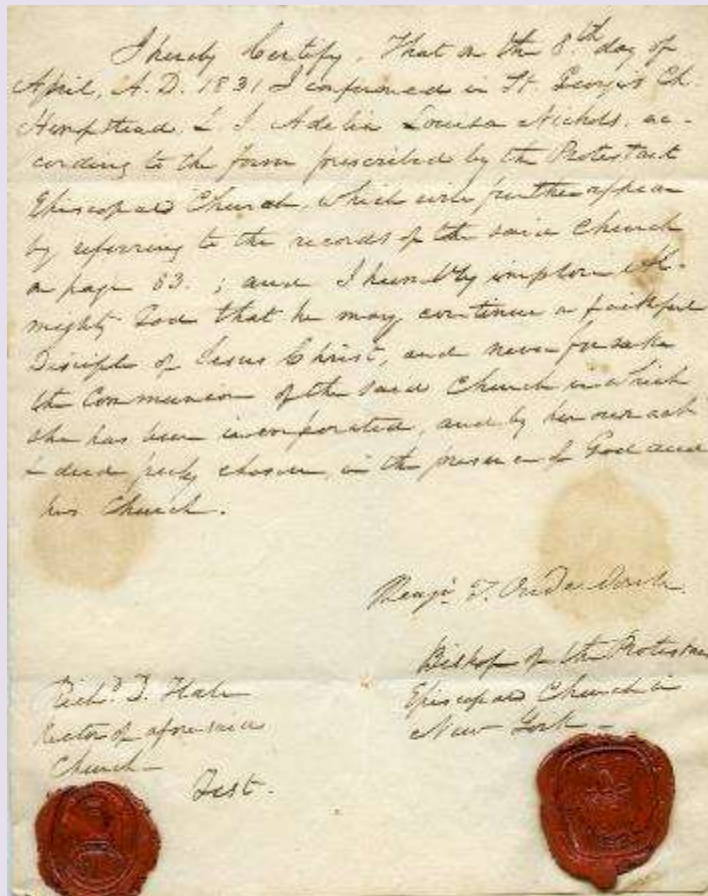 I hereby Certify, That on the 8th day of
April, A.D. 1831 I confirmed in St. George's Ch.
Hempstead L I Adelia Louisa Nichols, ac-
cording to the form prescribed by the Protestant
Episcopal Church, which will further appear
by referring to the records of the said Church
on page 83. ; and I humbly implore Al-
mighty God that he may continue a faithful
Disciple of Jesus Christ, and never forsake
the Communion of the said Church in which
she has been incorporated, and by her own act
& deed freely chosen, in the presence of God and
his Church.
Benjn. T. Onderdonk
Bishop of the Protestant
Episcopal Church in
New York
Richd. D.
Rector of aforesaid
Church
Test.